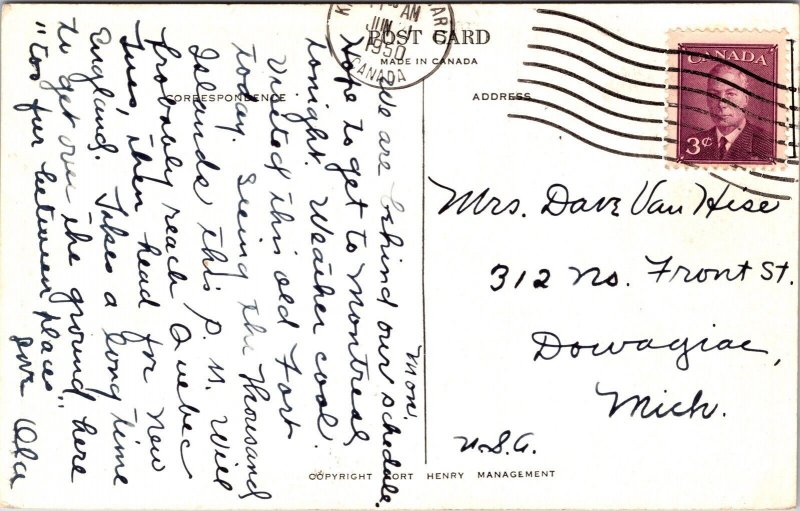 POST CARD
MADE IN CANADA
CORRESPONDENCE
ADDRESS
AM
JUN 1
1950
CANADA
CANADA
3¢
Mon.
We are behind our schedule.
Hope to get to Montreal
tonight. Weather cool.
Visited this old Fort
today. Seeing the Thousand
Islands this P. M. Will
probably reach Quebec
Tues, then head for New
England. Takes a long time
to get over the ground here
"too fur between places"
Love Ola
Mrs. Dave Van Hise
312 No. Front St.
Dowagiac,
Mich.
U.S.A.
COPYRIGHT FORT HENRY MANAGEMENT